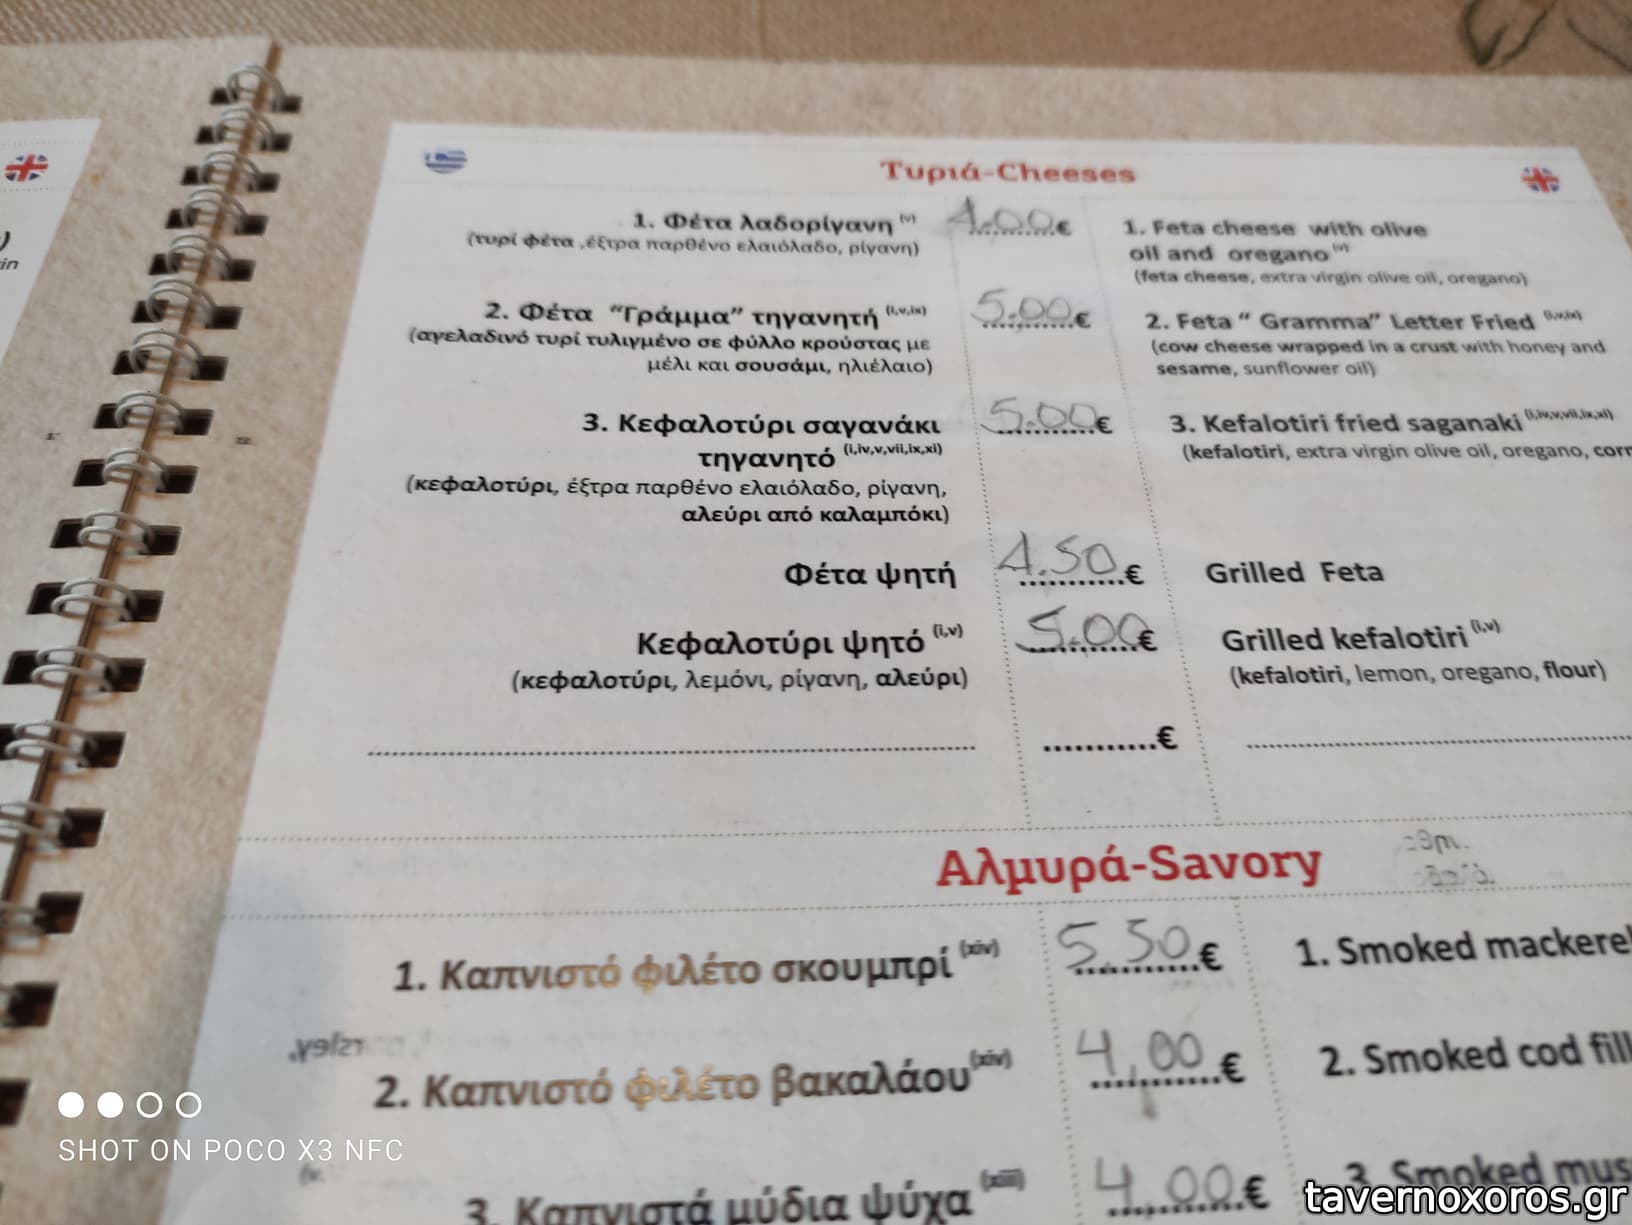 Τυριά-Cheeses
1. Φέτα λαδορίγανη (v) 4.00€ 1. Feta cheese with olive
oil and oregano (v)
(τυρί φέτα ,έξτρα παρθένο ελαιόλαδο, ρίγανη)
(feta cheese, extra virgin olive oil, oregano)
2. Φέτα "Γράμμα" τηγανητή (i,v,ix) 5.00€ 2. Feta " Gramma" Letter Fried (i,v,ix)
(αγελαδινό τυρί τυλιγμένο σε φύλλο κρούστας με (cow cheese wrapped in a crust with honey and
μέλι και σουσάμι, ηλιέλαιο) sesame, sunflower oil)
3. Κεφαλοτύρι σαγανάκι 5.00€ 3. Kefalotiri fried saganaki (i,iv,v,vii,ix,xi)
τηγανητό (i,iv,v,vii,ix,xi) (kefalotiri, extra virgin olive oil, oregano, corn
(κεφαλοτύρι, έξτρα παρθένο ελαιόλαδο, ρίγανη,
αλεύρι από καλαμπόκι)
Φέτα ψητή 4.50€ Grilled Feta
Κεφαλοτύρι ψητό (i,v) 5.00€ Grilled kefalotiri (i,v)
(κεφαλοτύρι, λεμόνι, ρίγανη, αλεύρι) (kefalotiri, lemon, oregano, flour)
...........€
Αλμυρά-Savory
1. Καπνιστό φιλέτο σκουμπρί (xiv) 5.50€ 1. Smoked mackerel
2. Καπνιστό φιλέτο βακαλάου (xiv) 4,00€ 2. Smoked cod fill
3. Καπνιστά μύδια ψύχα (xiii) 4,00€ 3. Smoked mus
SHOT ON POCO X3 NFC
tavernoxoros.gr